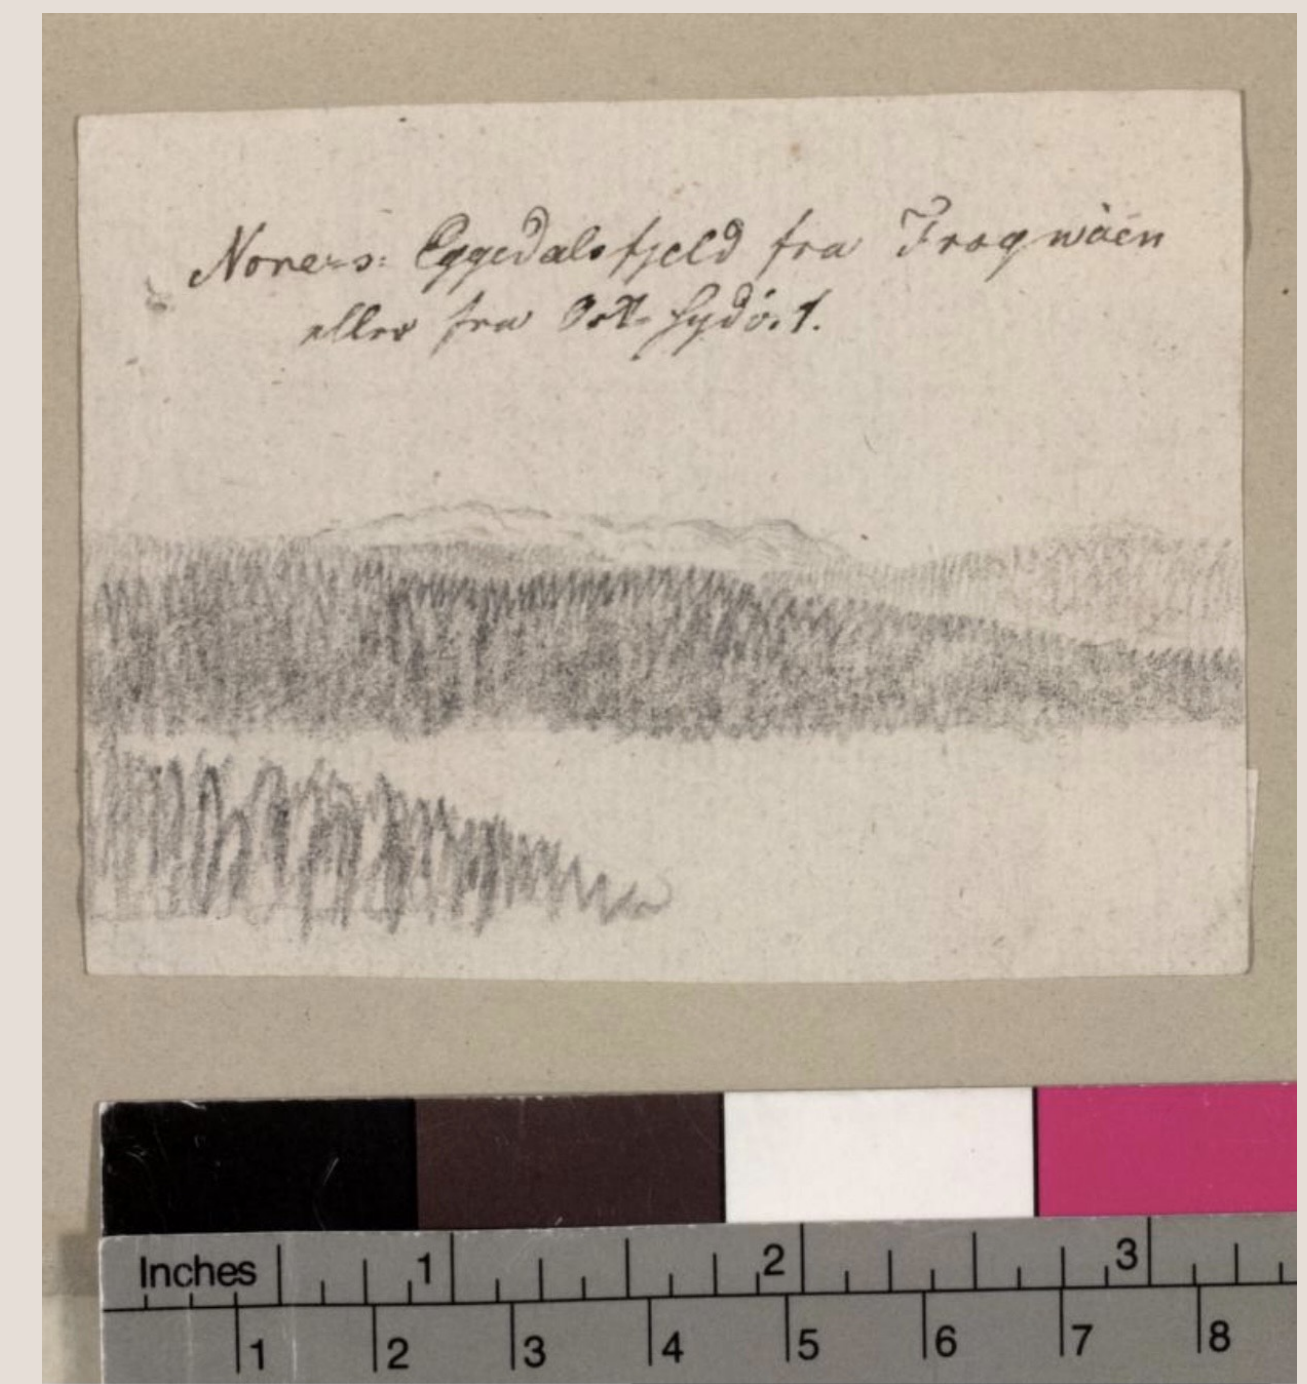 Norefs: Eggedalsfjeld fra Frognwåen
eller fra Ost-Sydöst.
Inches 1 2 3
1 2 3 4 5 6 7 8